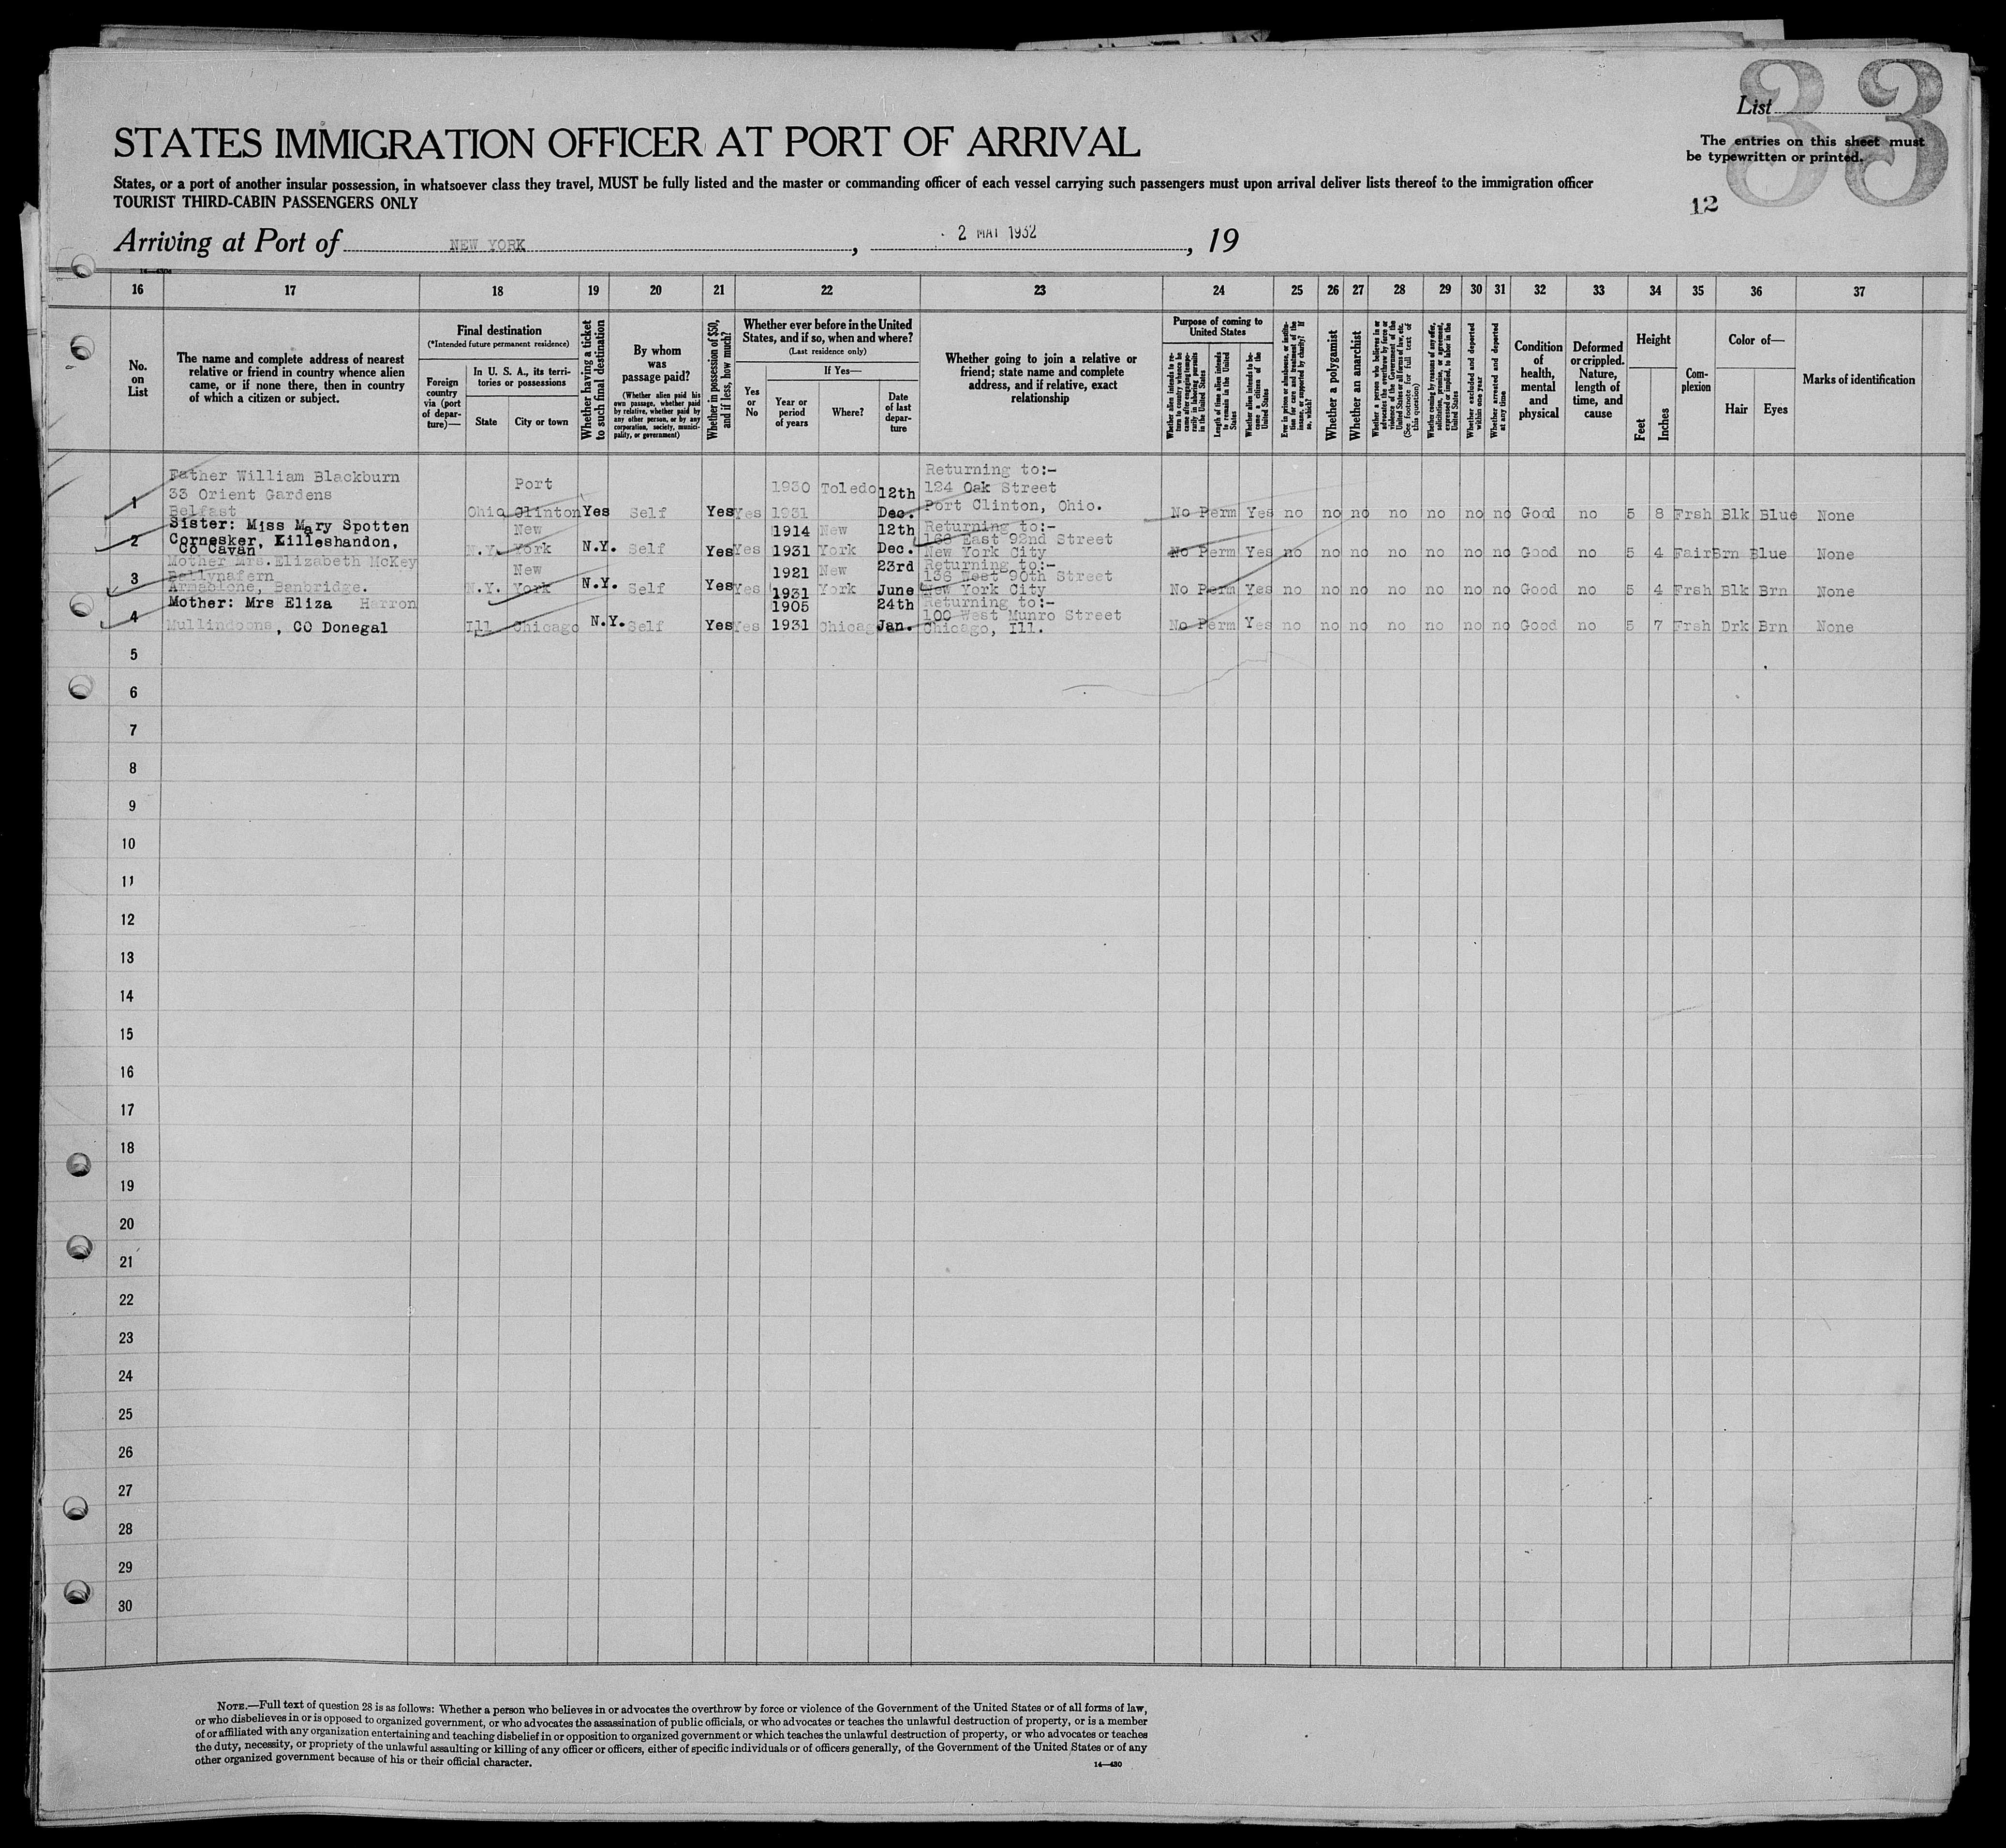 33
List
STATES IMMIGRATION OFFICER AT PORT OF ARRIVAL
The entries on this sheet must
be typewritten or printed.
States, or a port of another insular possession, in whatsoever class they travel, MUST be fully listed and the master or commanding officer of each vessel carrying such passengers must upon arrival deliver lists thereof to the immigration officer
TOURIST THIRD-CABIN PASSENGERS ONLY
12
Arriving at Port of NEW YORK , 2 MAY 1932 , 19
16 17 18 19 20 21 22 23 24 25 26 27 28 29 30 31 32 33 34 35 36 37
No. on List
The name and complete address of nearest relative or friend in country whence alien came, or if none there, then in country of which a citizen or subject.
Final destination
(*Intended future permanent residence)
Foreign country via (port of departure)—
In U. S. A., its territories or possessions
State
City or town
Whether having a ticket to such final destination
By whom was passage paid?
(Whether alien paid his own passage, whether paid by relative, whether paid by any other person, or by any corporation, society, municipality, or government)
Whether in possession of $50, and if less, how much?
Whether ever before in the United States, and if so, when and where?
(Last residence only)
Yes or No
If Yes—
Year or period of years
Where?
Date of last departure
Whether going to join a relative or friend; state name and complete address, and if relative, exact relationship
Purpose of coming to United States
Whether alien intends to return to country whence he came after engaging temporarily in laboring pursuits in the United States
Length of time alien intends to remain in the United States
Whether alien intends to become a citizen of the United States
Ever in prison or almshouse, or institution for care and treatment of the insane, or supported by charity? If so, which?
Whether a polygamist
Whether an anarchist
Whether a person who believes in or advocates the overthrow by force or violence of the Government of the United States or all forms of law, etc. (See footnote for full text of this question)
Whether coming by reasons of any offer, solicitation, promise, or agreement, expressed or implied, to labor in the United States
Whether excluded and deported within one year
Whether arrested and deported at any time
Condition of health, mental and physical
Deformed or crippled. Nature, length of time, and cause
Height
Feet
Inches
Complexion
Color of—
Hair
Eyes
Marks of identification
1 Father William Blackburn
33 Orient Gardens
Belfast
Ohio Port Clinton Yes Self Yes Yes 1930 1931 Toledo 12th Dec.
Returning to:-
124 Oak Street
Port Clinton, Ohio.
No Perm Yes no no no no no no no Good no 5 8 Frsh Blk Blue None
2 Sister: Miss Mary Spotten
Cornesker, Killeshandon,
Co Cavan
N.Y. New York N.Y. Self Yes Yes 1914 1931 New York 12th Dec.
Returning to:-
168 East 92nd Street
New York City
No Perm Yes no no no no no no no Good no 5 4 Fair Brn Blue None
3 Mother Mrs. Elizabeth McKey
Ballynafern
Banbridge.
N.Y. New York N.Y. Self Yes Yes 1921 1931 New York 23rd June
Returning to:-
136 West 90th Street
New York City
No Perm Yes no no no no no no no Good no 5 4 Frsh Blk Brn None
4 Mother: Mrs Eliza Harron
, CO Donegal
Ill Chicago N.Y. Self Yes Yes 1905 1931 Chicag 24th Jan.
Returning to:-
100 West Munro Street
Chicago, Ill.
No Perm Yes no no no no no no no Good no 5 7 Frsh Drk Brn None
5
6
7
8
9
10
11
12
13
14
15
16
17
18
19
20
21
22
23
24
25
26
27
28
29
30
NOTE.—Full text of question 28 is as follows: Whether a person who believes in or advocates the overthrow by force or violence of the Government of the United States or of all forms of law,
or who disbelieves in or is opposed to organized government, or who advocates the assassination of public officials, or who advocates or teaches the unlawful destruction of property, or is a member
of or affiliated with any organization entertaining and teaching disbelief in or opposition to organized government or which teaches the unlawful destruction of property, or who advocates or teaches
the duty, necessity, or propriety of the unlawful assaulting or killing of any officer or officers, either of specific individuals or of officers generally, of the Government of the United States or of any
other organized government because of his or their official character.
14—430